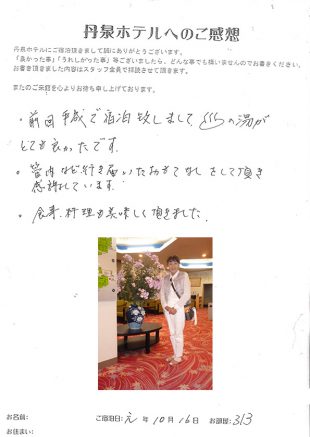 丹泉ホテルへのご感想
丹泉ホテルにご宿泊頂きまして誠にありがとうございます。
「良かった事」「うれしかった事」等ございましたら、どんな事でも構いませんのでお書きください。
お書き頂きました内容はスタッフ全員で拝読させて頂きます。
またのご来館を心よりお待ち申し上げております。
・前回 平成で宿泊致しまして ♨の湯が
とても良かったです。
・館内など行き届いたおもてなしをして頂き
感謝しています。
・食事、料理も美味しく頂きました。
お名前: ご宿泊日: 元 年 10 月 16 日 お部屋: 313
お住まい: